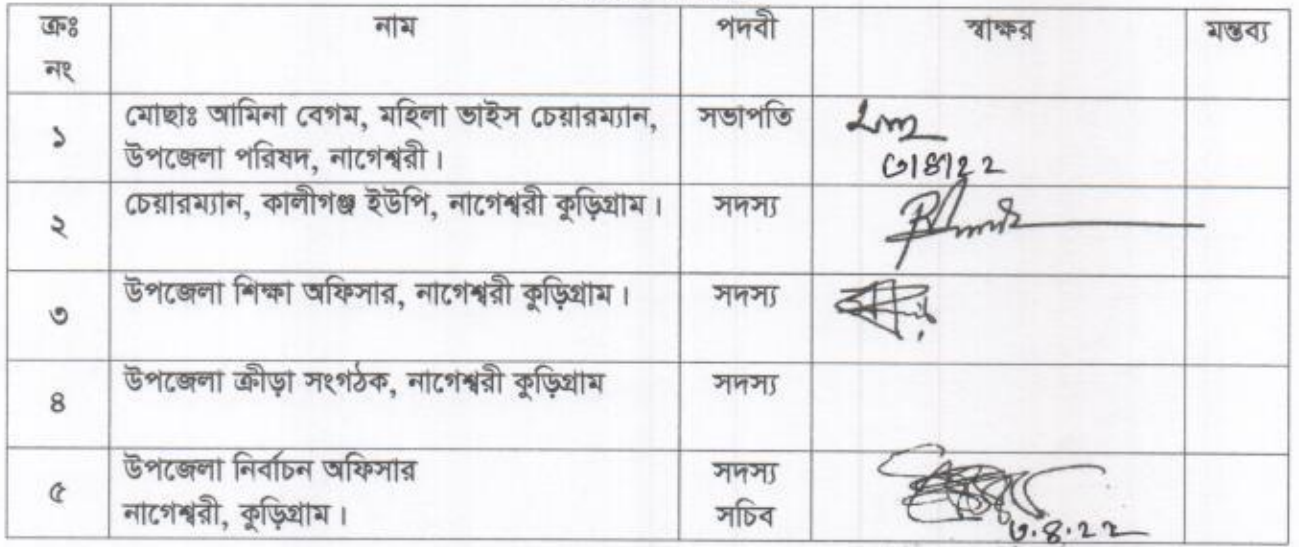 ক্রঃ নং নাম পদবী স্বাক্ষর মন্তব্য
১ মোছাঃ আমিনা বেগম, মহিলা ভাইস চেয়ারম্যান, সভাপতি
উপজেলা পরিষদ, নাগেশ্বরী।
৩/৪/২২
২ চেয়ারম্যান, কালীগঞ্জ ইউপি, নাগেশ্বরী কুড়িগ্রাম। সদস্য
৩ উপজেলা শিক্ষা অফিসার, নাগেশ্বরী কুড়িগ্রাম। সদস্য
৪ উপজেলা ক্রীড়া সংগঠক, নাগেশ্বরী কুড়িগ্রাম সদস্য
৫ উপজেলা নির্বাচন অফিসার সদস্য
নাগেশ্বরী, কুড়িগ্রাম। সচিব
৩.৪.২২